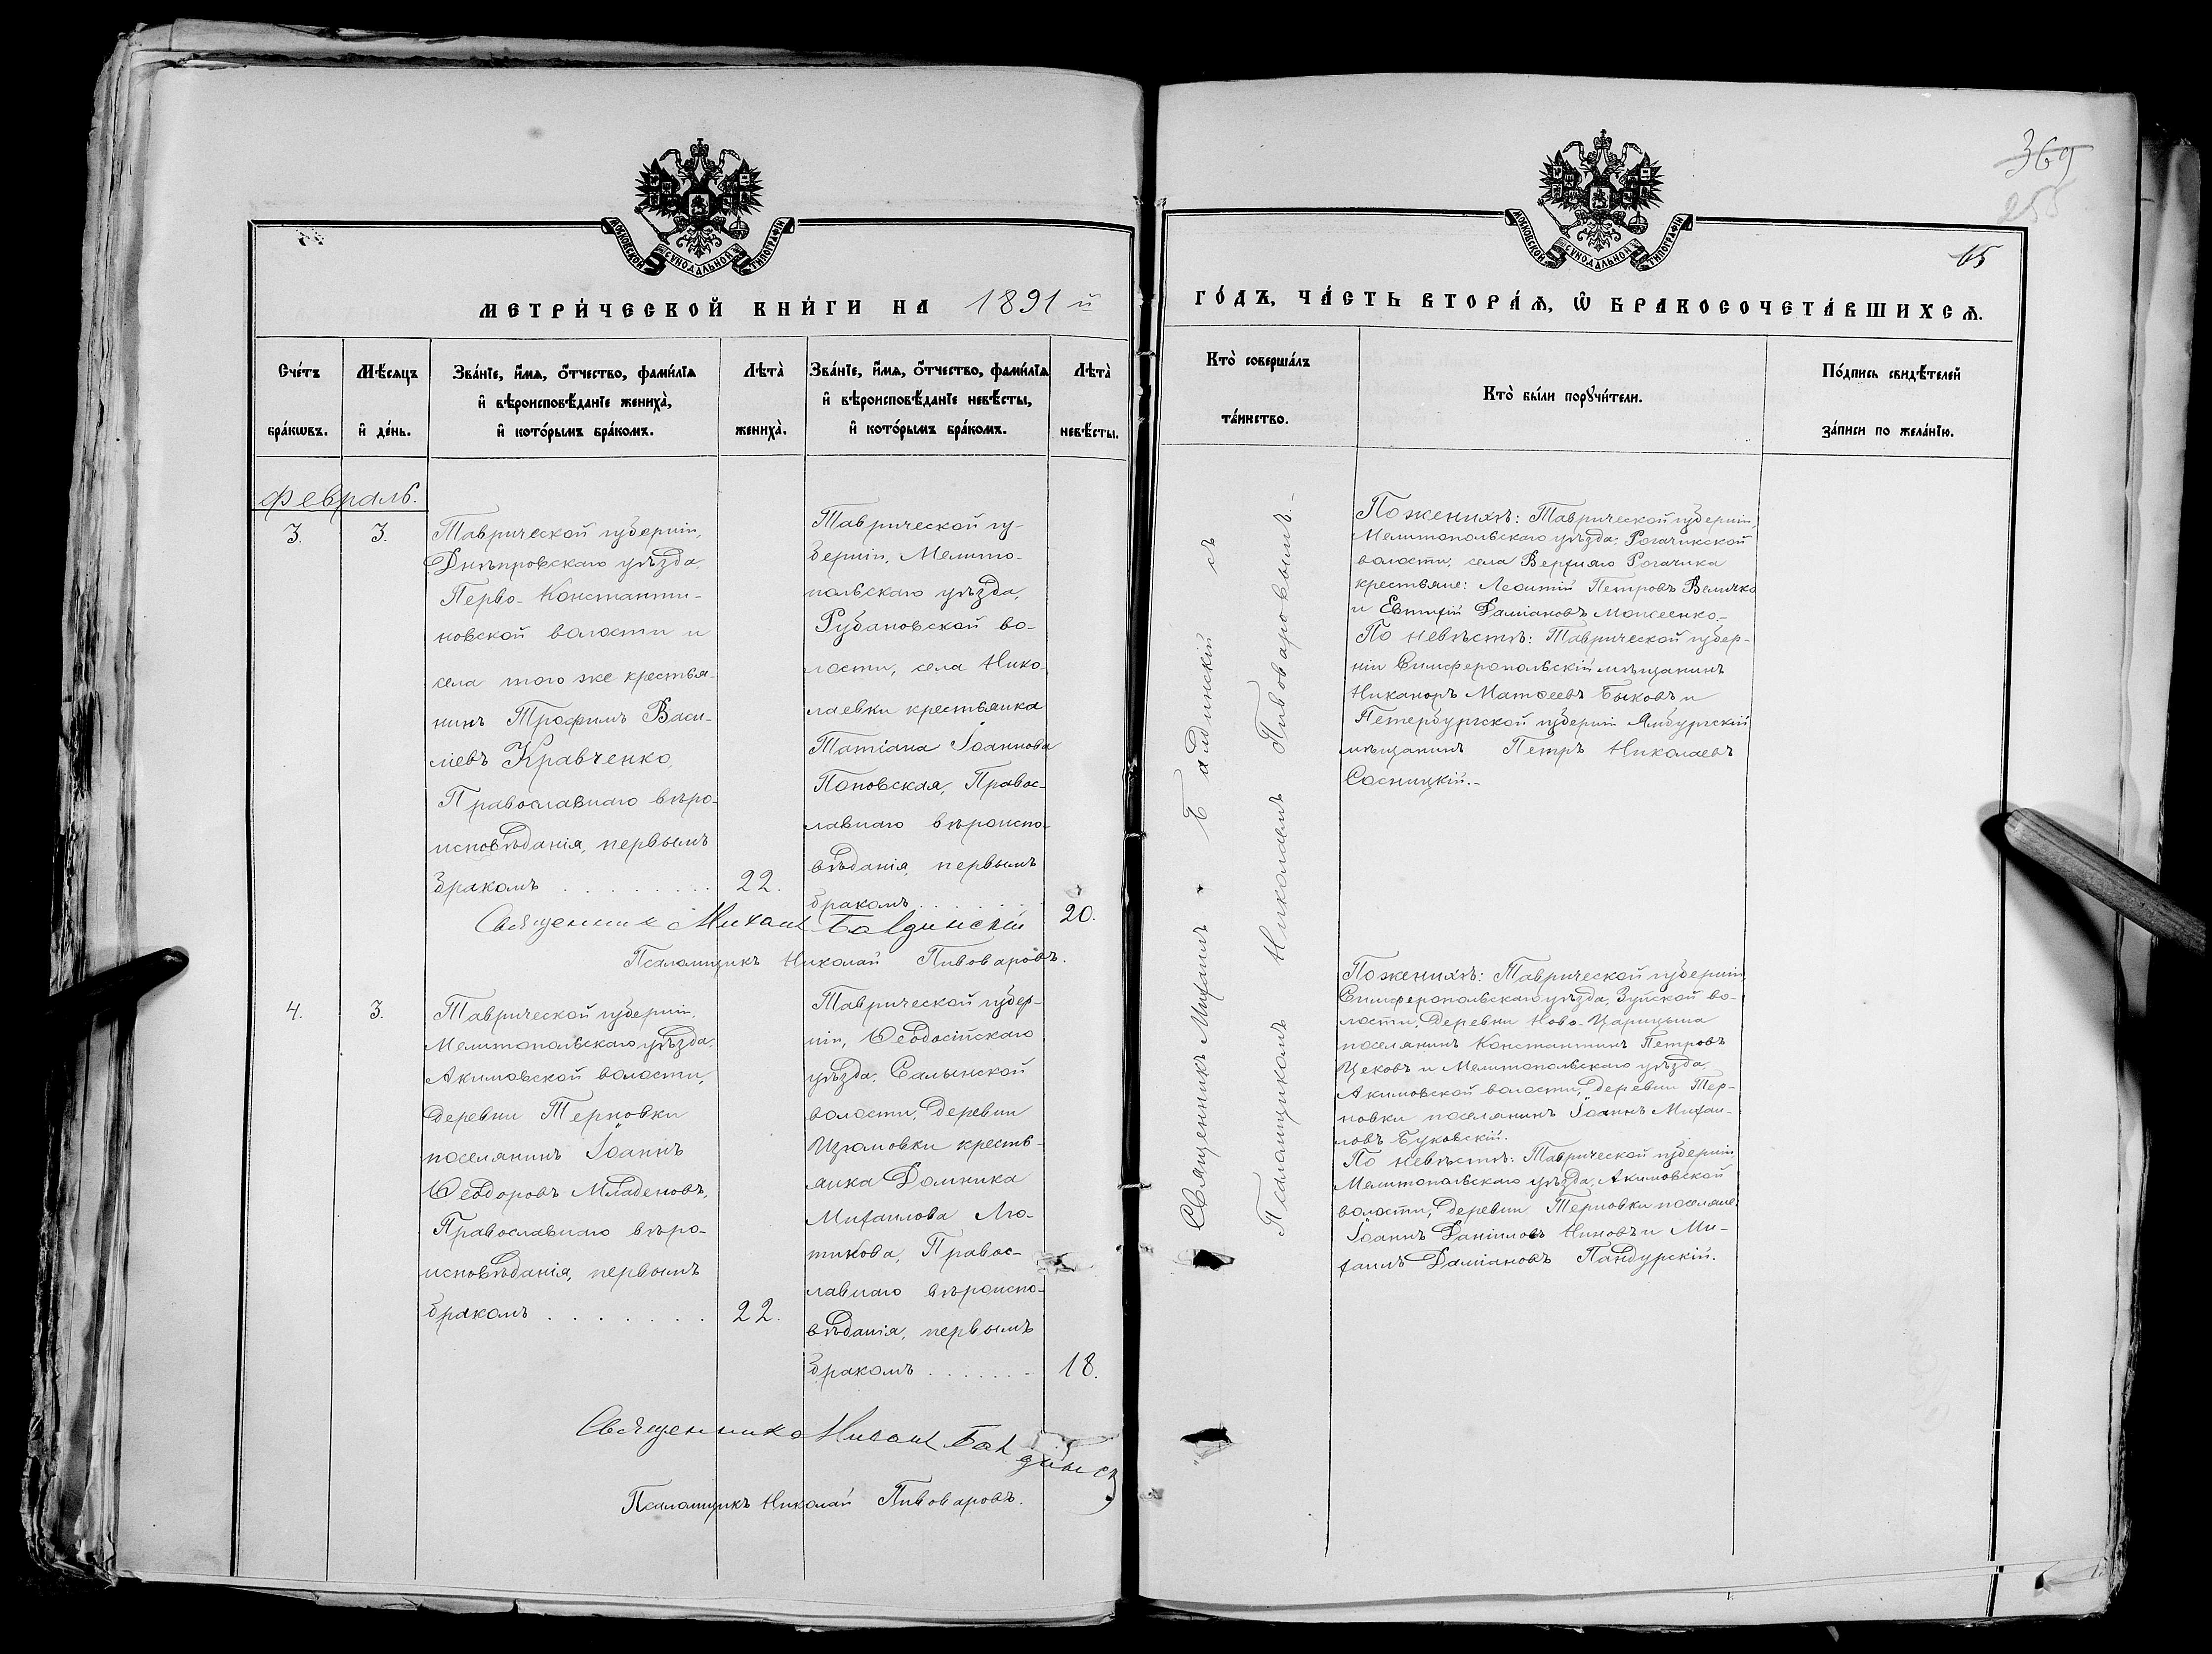 МОСКОВСКОЙ СѴНОДАЛЬНОЙ ТИПОГРАФІИ
МЕТРИ́ЧЕСКОЙ КНИ́ГИ НА 1891 й
Сче́тъ бра́кѡвъ.
Мѣ́сяцъ и҆ де́нь.
Зва́нїе, и҆́мѧ, ѻ҆́тчество, фами́лїѧ
и҆ вѣроисповѣ́данїе жениха̀,
и҆ кото́рымъ бра́комъ.
Лѣта̀ жениха̀.
Зва́нїе, и҆́мѧ, ѻ҆́тчество, фами́лїѧ
и҆ вѣроисповѣ́данїе невѣ́сты,
и҆ кото́рымъ бра́комъ.
Лѣта̀ невѣ́сты.
Февраль.
3.
3.
Таврической губерніи,
Днѣпровскаго уѣзда,
Перво-Константи-
новской волости и
села того же крестья-
нинъ Трофимъ Васи-
ліевъ Кравченко,
Православнаго вѣро-
исповѣданія, первымъ
бракомъ . . . . . . . .
22.
Таврической гу-
берніи, Мелито-
польскаго уѣзда,
Рубановской во-
лости, села Нико-
лаевки крестьянка
Татіана Іоаннова
Поповская, Правос-
лавнаго вѣроиспо-
вѣданія, первымъ
бракомъ . . . . . .
20.
Священникъ Михаил Балдинскій
Псаломщикъ Николай Пивоваровъ.
4.
3.
Таврической губерніи,
Мелитопольскаго уѣзда,
Акимовской волости,
деревни Терновки
поселянинъ Іоаннъ
Ѳеодоровъ Младеновъ,
Православнаго вѣро-
исповѣданія, первымъ
бракомъ . . . . . . .
22.
Таврической губер-
ніи, Ѳеодосійскаго
уѣзда, Салынской
волости, деревни
Изюмовки кресть-
янка Домника
Михаилова Лю-
тикова, Правос-
лавнаго вѣроиспо-
вѣданія, первымъ
бракомъ . . . . . . .
18.
Священникъ Михаил Бал
динск
Псаломщикъ Николай Пивоваровъ.
369
255
65
МОСКОВСКОЙ СѴНОДАЛЬНОЙ ТИПОГРАФІИ
ГО́ДЪ, ЧА́СТЬ ВТОРА́Ѧ, Ѡ҆ БРАКОСОЧЕТА́ВШИХСѦ.
Кто̀ соверша́лъ
та́инство.
Кто̀ бы́ли порꙋчи́тели.
По́дпись свидѣ́телей
за́писи по жела́нїю.
Священникъ Михаилъ Балдинскій съ
Псаломщикомъ Николаемъ Пивоваровымъ.-
По женихѣ: Таврической губерніи,
Мелитопольскаго уѣзда, Рогачикской
волости, села Верхняго Рогачика
крестьяне: Леонтій Петровъ Величко
и Евтихій Даміановъ Моисеенко.-
По невѣстѣ: Таврической губер-
ніи Симферопольскій мѣщанинъ
Никаноръ Матѳеевъ Быковъ и
Петербургской губерніи Ямбургскій
мѣщанинъ Петръ Николаевъ
Сосницкій.-
По женихѣ: Таврической губерніи,
Симферопольскаго уѣзда, Зуйской во-
лости, деревни Ново-Царицына
поселянинъ Константинъ Петровъ
Цековъ и Мелитопольскаго уѣзда,
Акимовской волости, деревни Тер-
новки поселянинъ Іоаннъ Михаи-
ловъ Буковскій.
По невѣстѣ: Таврической губерніи
Мелитопольскаго уѣзда, Акимовской
волости, деревни Терновки поселяне
Іоаннъ Даніиловъ Ниновъ и Ми-
хаилъ Даміановъ Пандурскій.